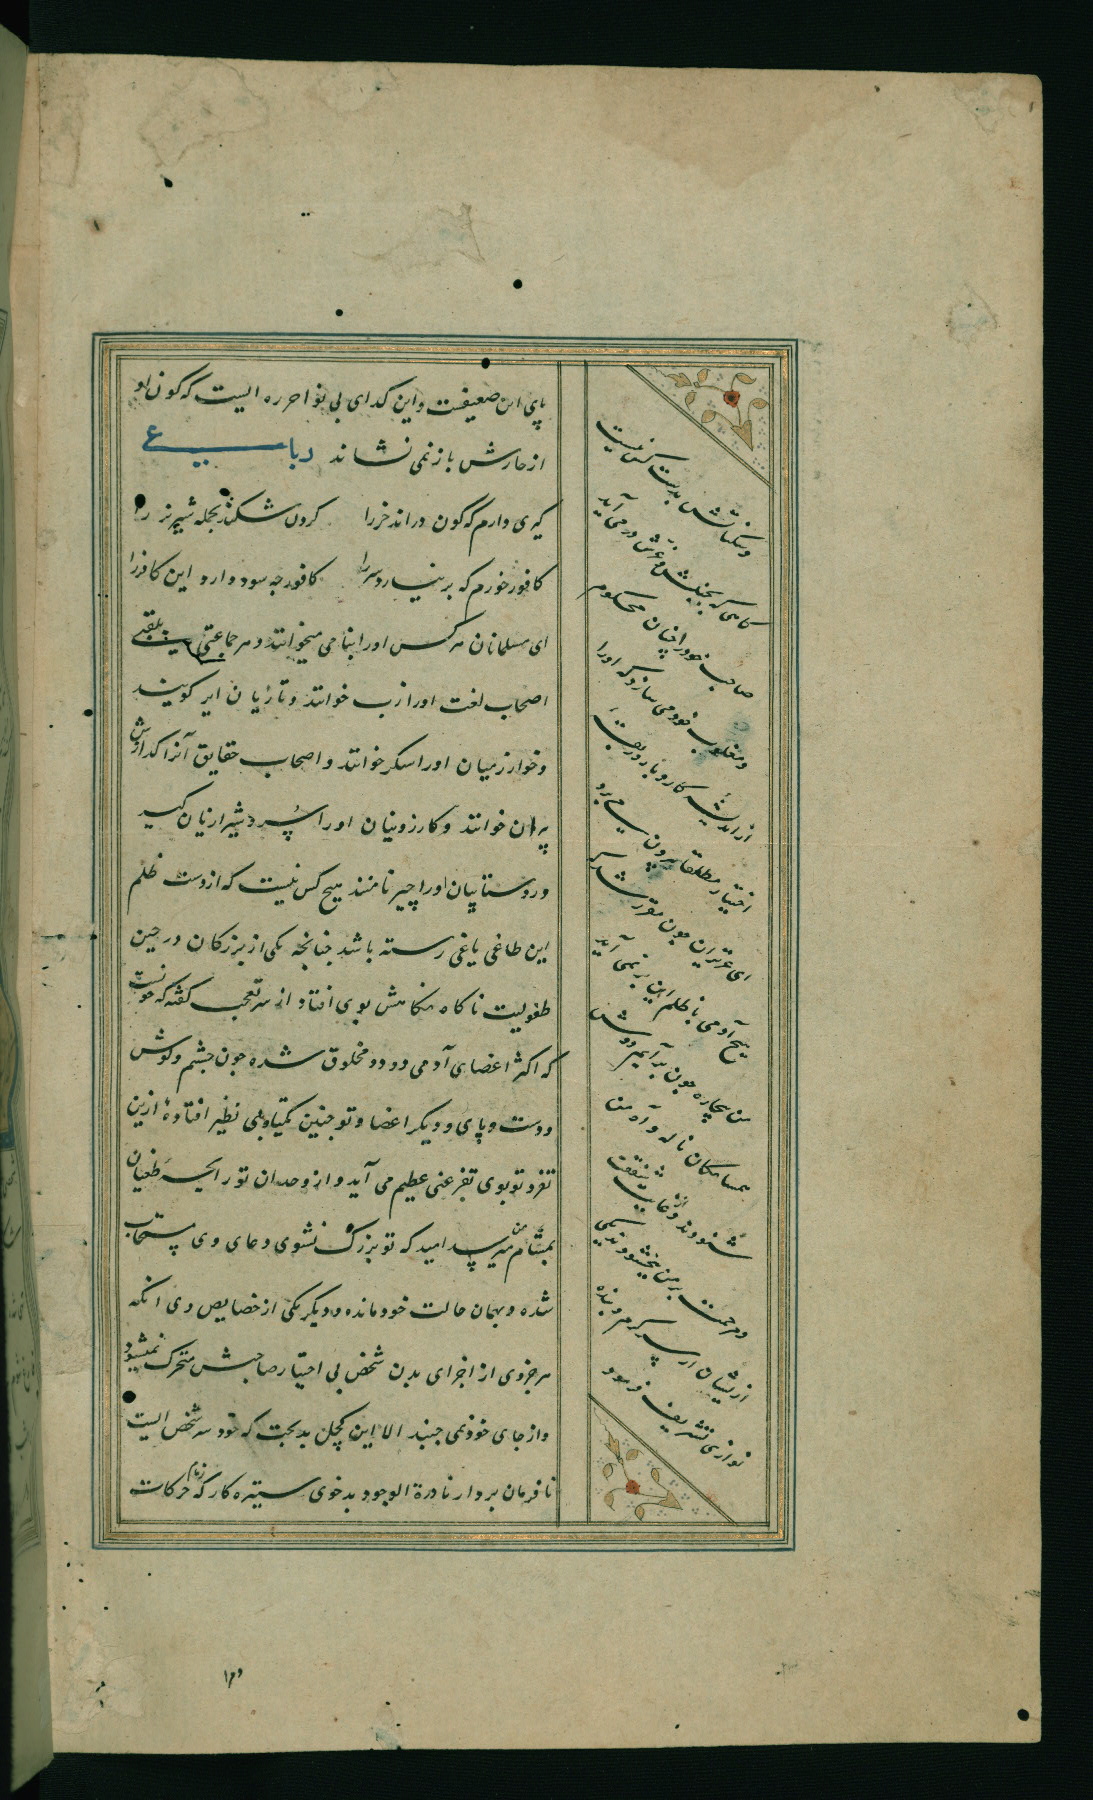 پای این ضعیفست و این گدای بی نوا خر ره الیست که کون او
از خارش باز نمی نشاند رباعی
کیری دارم که کون دراند خر را گردن شکند بحمله شیر نر را
کافور خورم که بر نیارد سر را کافور چه سود دارد این کافر را
ای مسلمانان هر کس او را بنامی میخوانند و هر جماعتی بلقبی
اصحاب لغت او را زب خوانند و تازیان ایر گویند
و خوارزمیان او را سکر خوانند و اصحاب حقایق آنرا
خوانند و کازرونیان او را و شیرازیان کیر
و روستاییان او را چیر نامند هیچ کس نیست که از دست ظلم
این طاغی یاغی رسته باشد چنانچه یکی از بزرگان در حین
طفولیت ناگاه نگاهش بوی افتاد از سر تعجب گفته که چونست
که اکثر اعضای آدمی دو دو مخلوق شده چون چشم و گوش
و دست و پای و دیگر اعضا و تو چنین یکتا و بی نظیر افتادهٔ ازین
تفرد تو بوی تفرعنی عظیم می آید و از وحدان تو رایحه طغیان
بمشام من میرسد امید که تو بزرگ نشوی دعای وی مستجاب
شده و بهمان حالت خود مانده و دیگر یکی از خصایص وی آنکه
هر جزوی از اجزای بدن شخص بی اختیار صاحبش متحرک نمیشود
و از جای خود نمی جنبد الا این کچل بدبخت که خود سر شخص الیست
نا فرمان بردار نادرة الوجود بدخوی ستیزه کار که زمام حرکات
و سکناتش بدست کس نیست
گاهی که بجنبش و عرش در می آید
صاحب خود را چنان محکوم
و مغلوب خود می سازد که او را
از اندیشه کار و بار و ربقهٔ
اختیار مطلقا بیرون می برد
ای عزیزان چون مقرر شد که
هیچ آدمی با ظلم این بر نمی آید
من بیچاره چون بر آیم دوش
همسایگان ناله و آه من
شنوودند و از غایت شفقت
و مرحمت بر من بخشودند یکی
از ایشان از سر کرم و بنده
نوازی تشریف فرمود